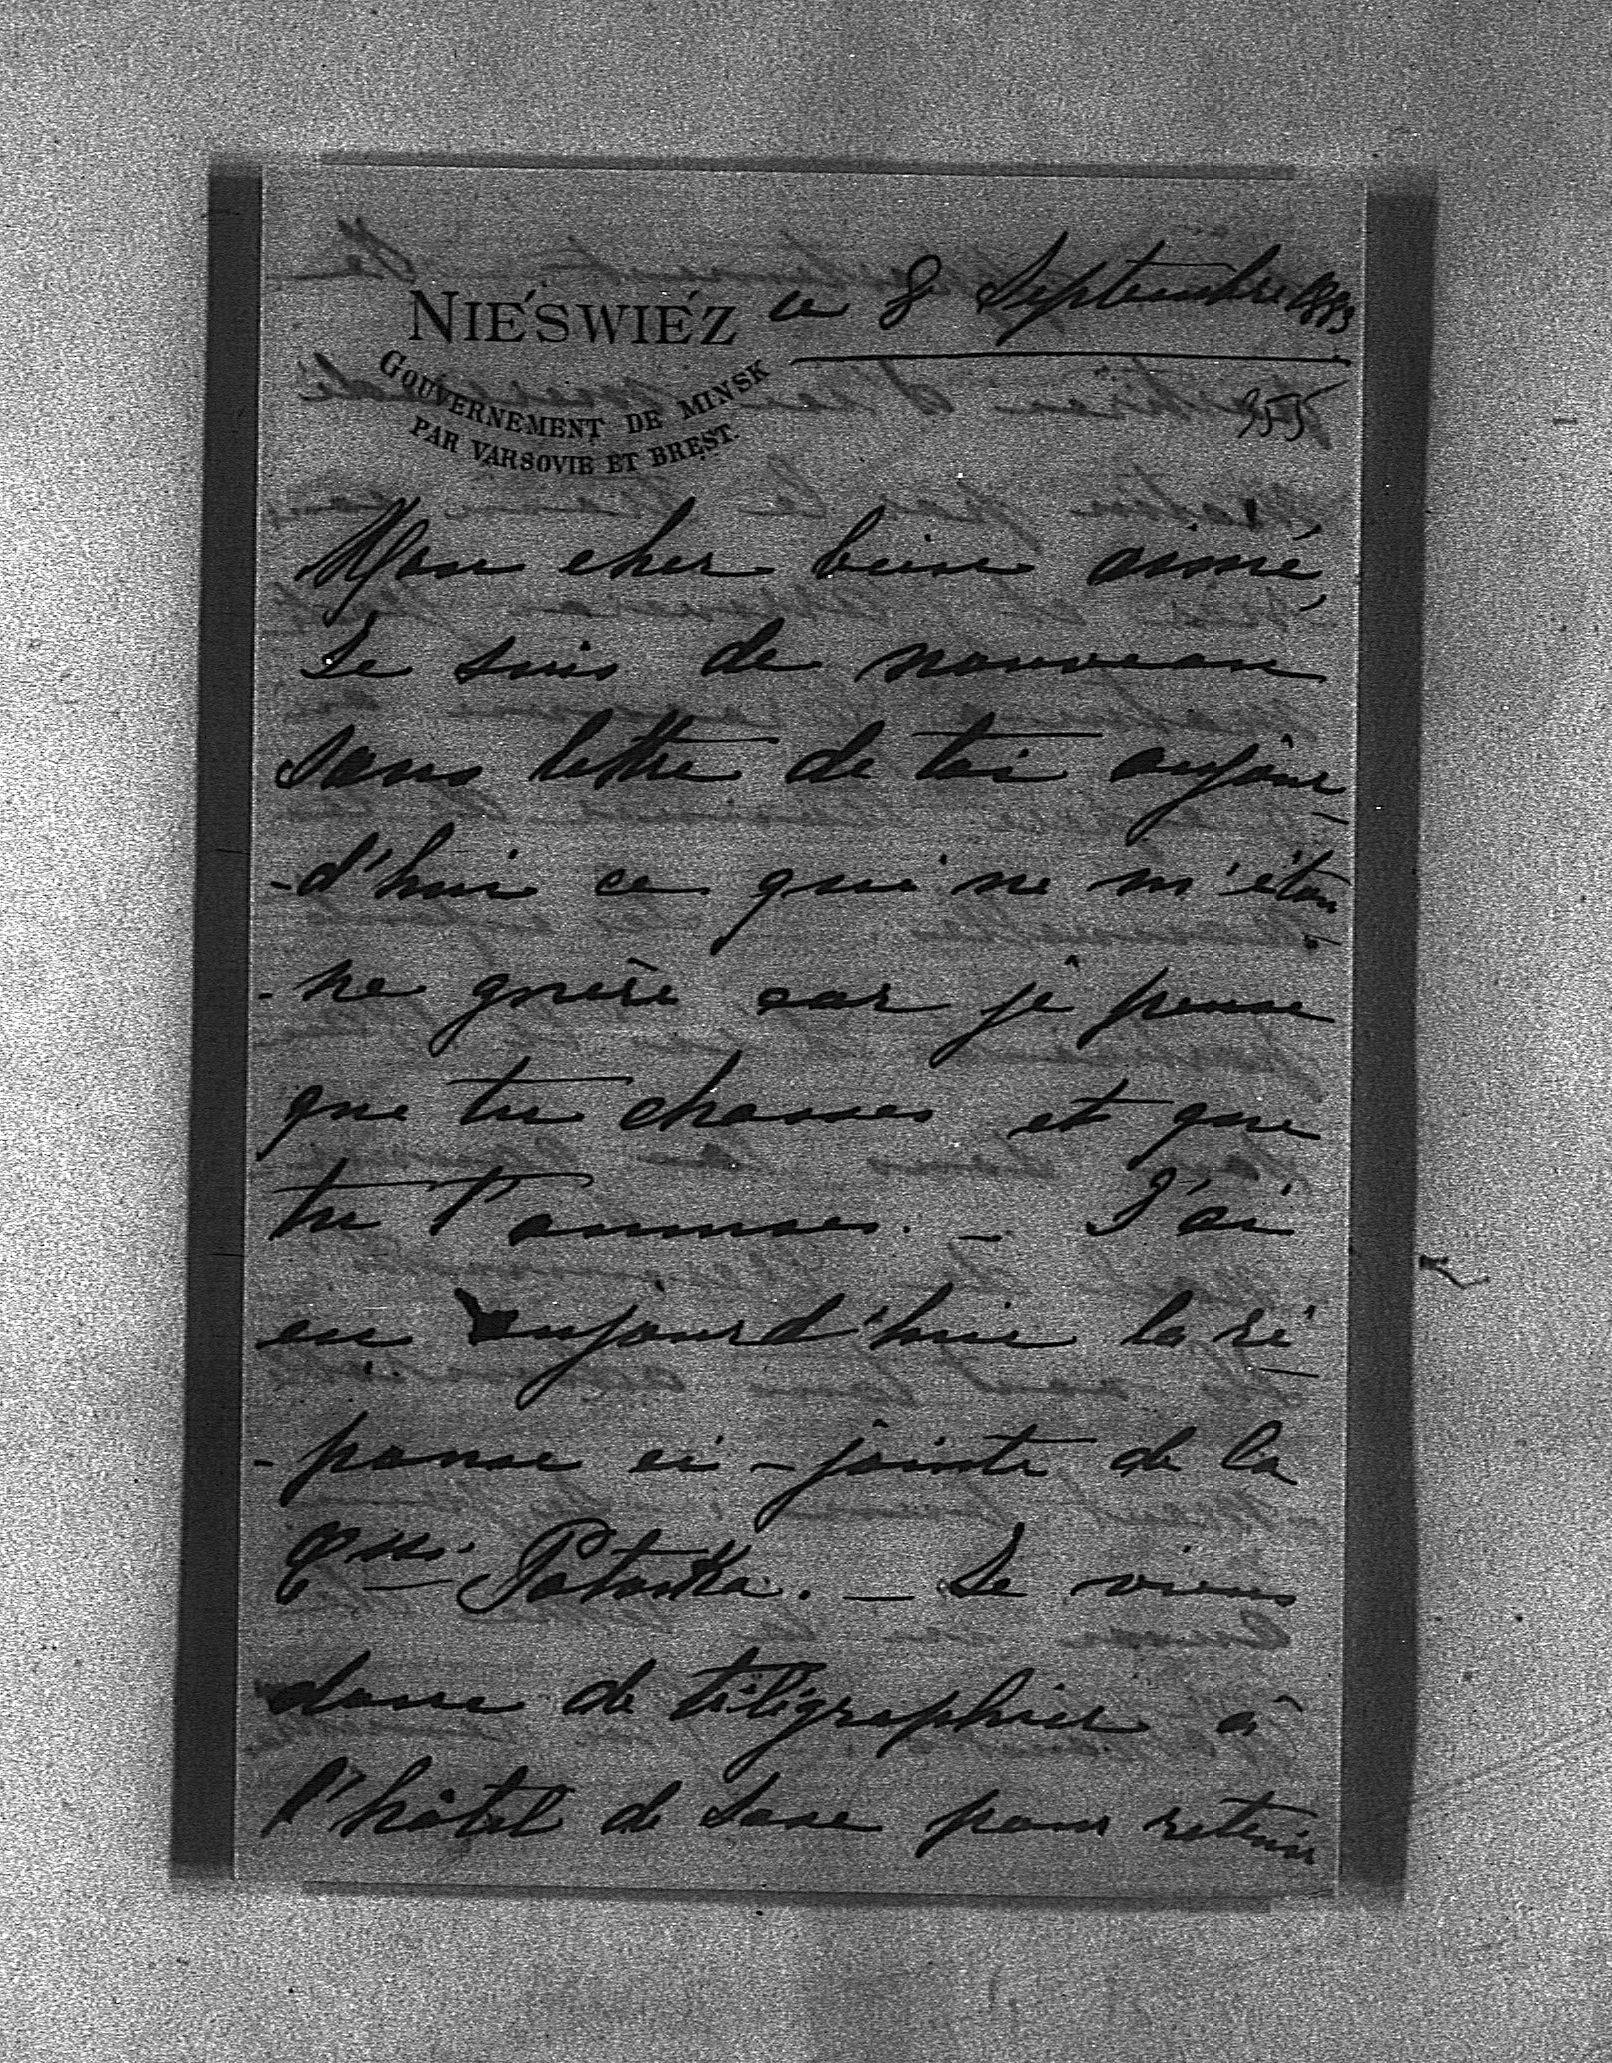 NIÉŚWIÉZ ce 8 Septembre 1883
GOUVERNEMENT DE MINSK
PAR VARSOVIE ET BREST.
355
Mon cher bien aimé,
Je suis de nouveau
sans lettre de toi aujour
-d'hui ce qui ne m'éton
-ne guère car je pense
que tu chasses et que
tu t'amuses. – J'ai
eu aujourd'hui la ré
-ponse ci-jointe de la
Csse Potocka. – Je viens
donc de télégraphier à
l'hôtel de Saxe pour retenir